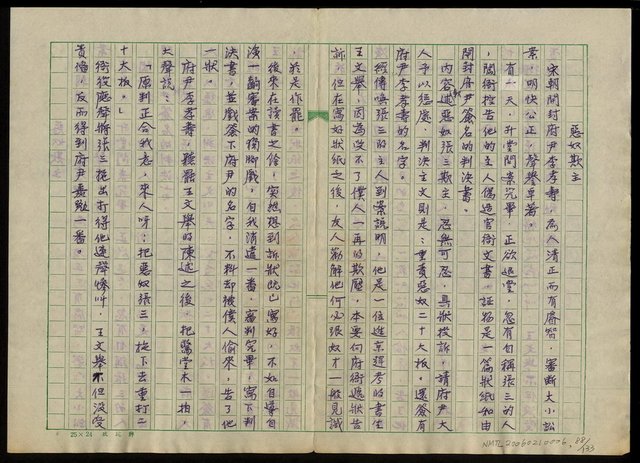 惡奴欺主
宋朝開封府尹李孝壽，為人清正而有膽智，審斷大小訟
案，明快公正，聲譽卓著。
有一天，升堂問案完畢，正欲退堂，忽有自稱張三的人
，闖衙控告他的主人偽造官衙文書，証物是一篇狀紙和由
開封府尹簽名的判決書。
內容述惡奴張三欺主，忍無可忍，具狀投訴，請府尹大
人予以懲處，判決主文則是：重責惡奴二十大板。還簽有
府尹李孝壽的名字。
經傳喚張三的主人到案說明，他是一位進京趕考的書生
王文舉，因為受不了僕人一再的欺壓，本要向府衙遞狀告
訴，但在寫好狀紙之後，友人勸解他何必與奴才一般見識
，於是作罷。
王後來在讀書之餘，突然想到訴狀既已寫好，不如自導自
演一齣審案的獨腳戲，自我消遣一番，審判完畢，寫下判
決書，並戲簽下府尹的名字，不料却被僕人偷來，告了他
一狀。
府尹李孝壽，聽罷王文舉的陳述之後，把驚堂木一拍，
大聲說：
「原判正合我意，來人呀：把惡奴張三，拖下去重打二
十大板。」
衙役應聲將張三拖出打得他連聲慘叫，王文舉不但沒受
責備，反而得到府尹嘉勉一番。
25×24
NMTL20060210006, 88/133